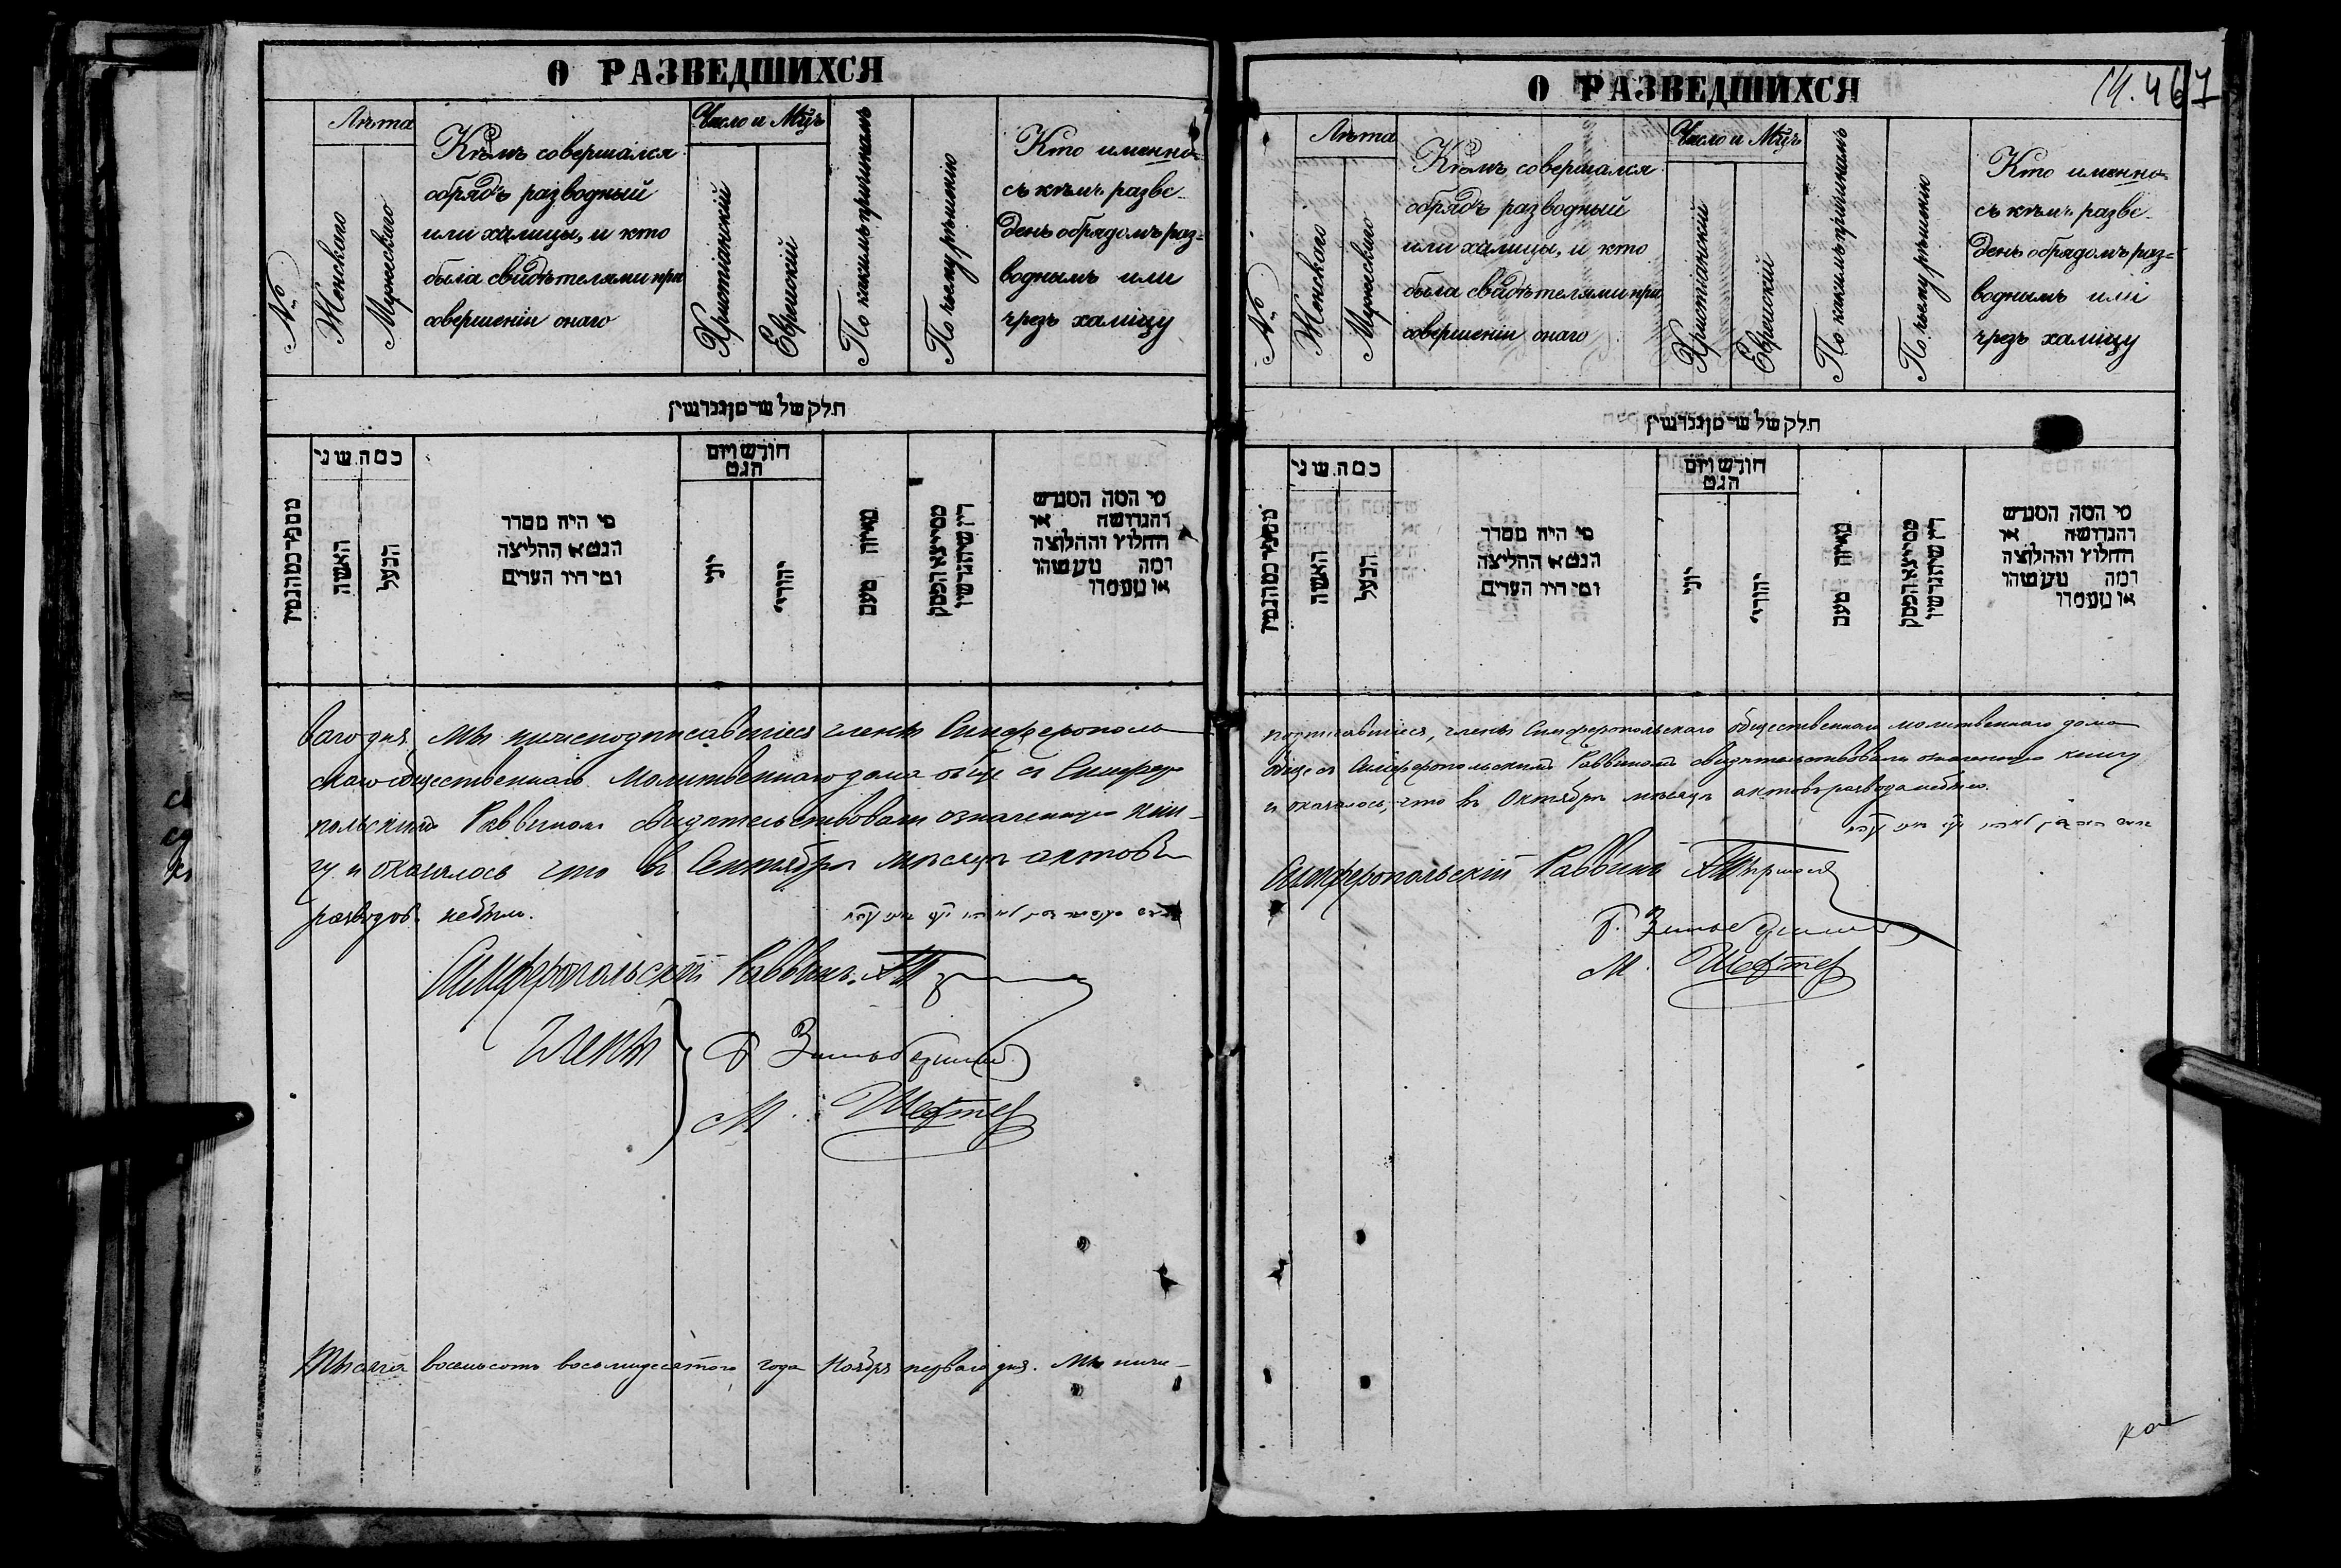 О РАЗВЕДШИХСЯ
№
Лѣта
Женскаго
Мужескаго
Кѣмъ совершался
обрядъ разводный
или халицы, и кто
была свидѣтелями при
совершеніи онаго
Число и Мѣцъ
Христіанскій
Еврейскій
По какимъ причинамъ
По чьему рѣшенію
Кто именно
съ кѣмъ разве-
денъ обрядомъ раз-
воднымъ или
чрезъ халицу
חלק של שר מן גרושין
מספר כמה גטין
כמה שני
האשה
הבעל
מי היה מסדר
הגט א החליצה
ומי היו העדים
חודש ויום
הגט
יוני
יהודי
מאיזה טעם
ממי יצא הפסק
דין של הגרושין
מי המה המגרש
והגרושה או
החלוץ והחלוצה
ומה נעשה
או
ваго дня. Мы нижеподписавшіеся члены Симферополь
скаго общественнаго Молитвеннаго дома обще съ Симферо
польскимъ Раввиномъ свидѣтельствовали означенную кни-
гу и оказалось что въ Сентябрѣ мѣсяцѣ актовъ
разводовъ небыло.
Симферопольскій Раввинъ
Члены
М. Шефтер
Тысяча восемьсотъ восьмидесятого года Ноября перваго дня. Мы ниже-
14.467
О РАЗВЕДШИХСЯ
№
Лѣта
Женскаго
Мужескаго
Кѣмъ совершался
обрядъ разводный
или халицы, и кто
была свидѣтелями при
совершеніи онаго
Число и Мѣцъ
Христіанскій
Еврейскій
По какимъ причинамъ
По чьему рѣшенію
Кто именно
съ кѣмъ разве-
денъ обрядомъ раз-
воднымъ или
чрезъ халицу
חלק של שר מן גרושין
מספר כמה גטין
כמה שני
האשה
הבעל
מי היה מסדר
הגט א החליצה
ומי היו העדים
חודש ויום
הגט
יוני
יהודי
מאיזה טעם
ממי יצא הפסק
דין של הגרושין
מי המה המגרש
והגרושה או
החלוץ והחלוצה
ומה נעשה
או
подписавшіеся, члены Симферопольскаго общественнаго молитвеннаго дома
обще съ Симферопольскимъ Раввиномъ свидѣтельствовали означенную книгу
и оказалось, что въ Октябрѣ мѣсяцѣ актовъ развода небыло.
Симферопольскій Раввинъ
М. Шефтер